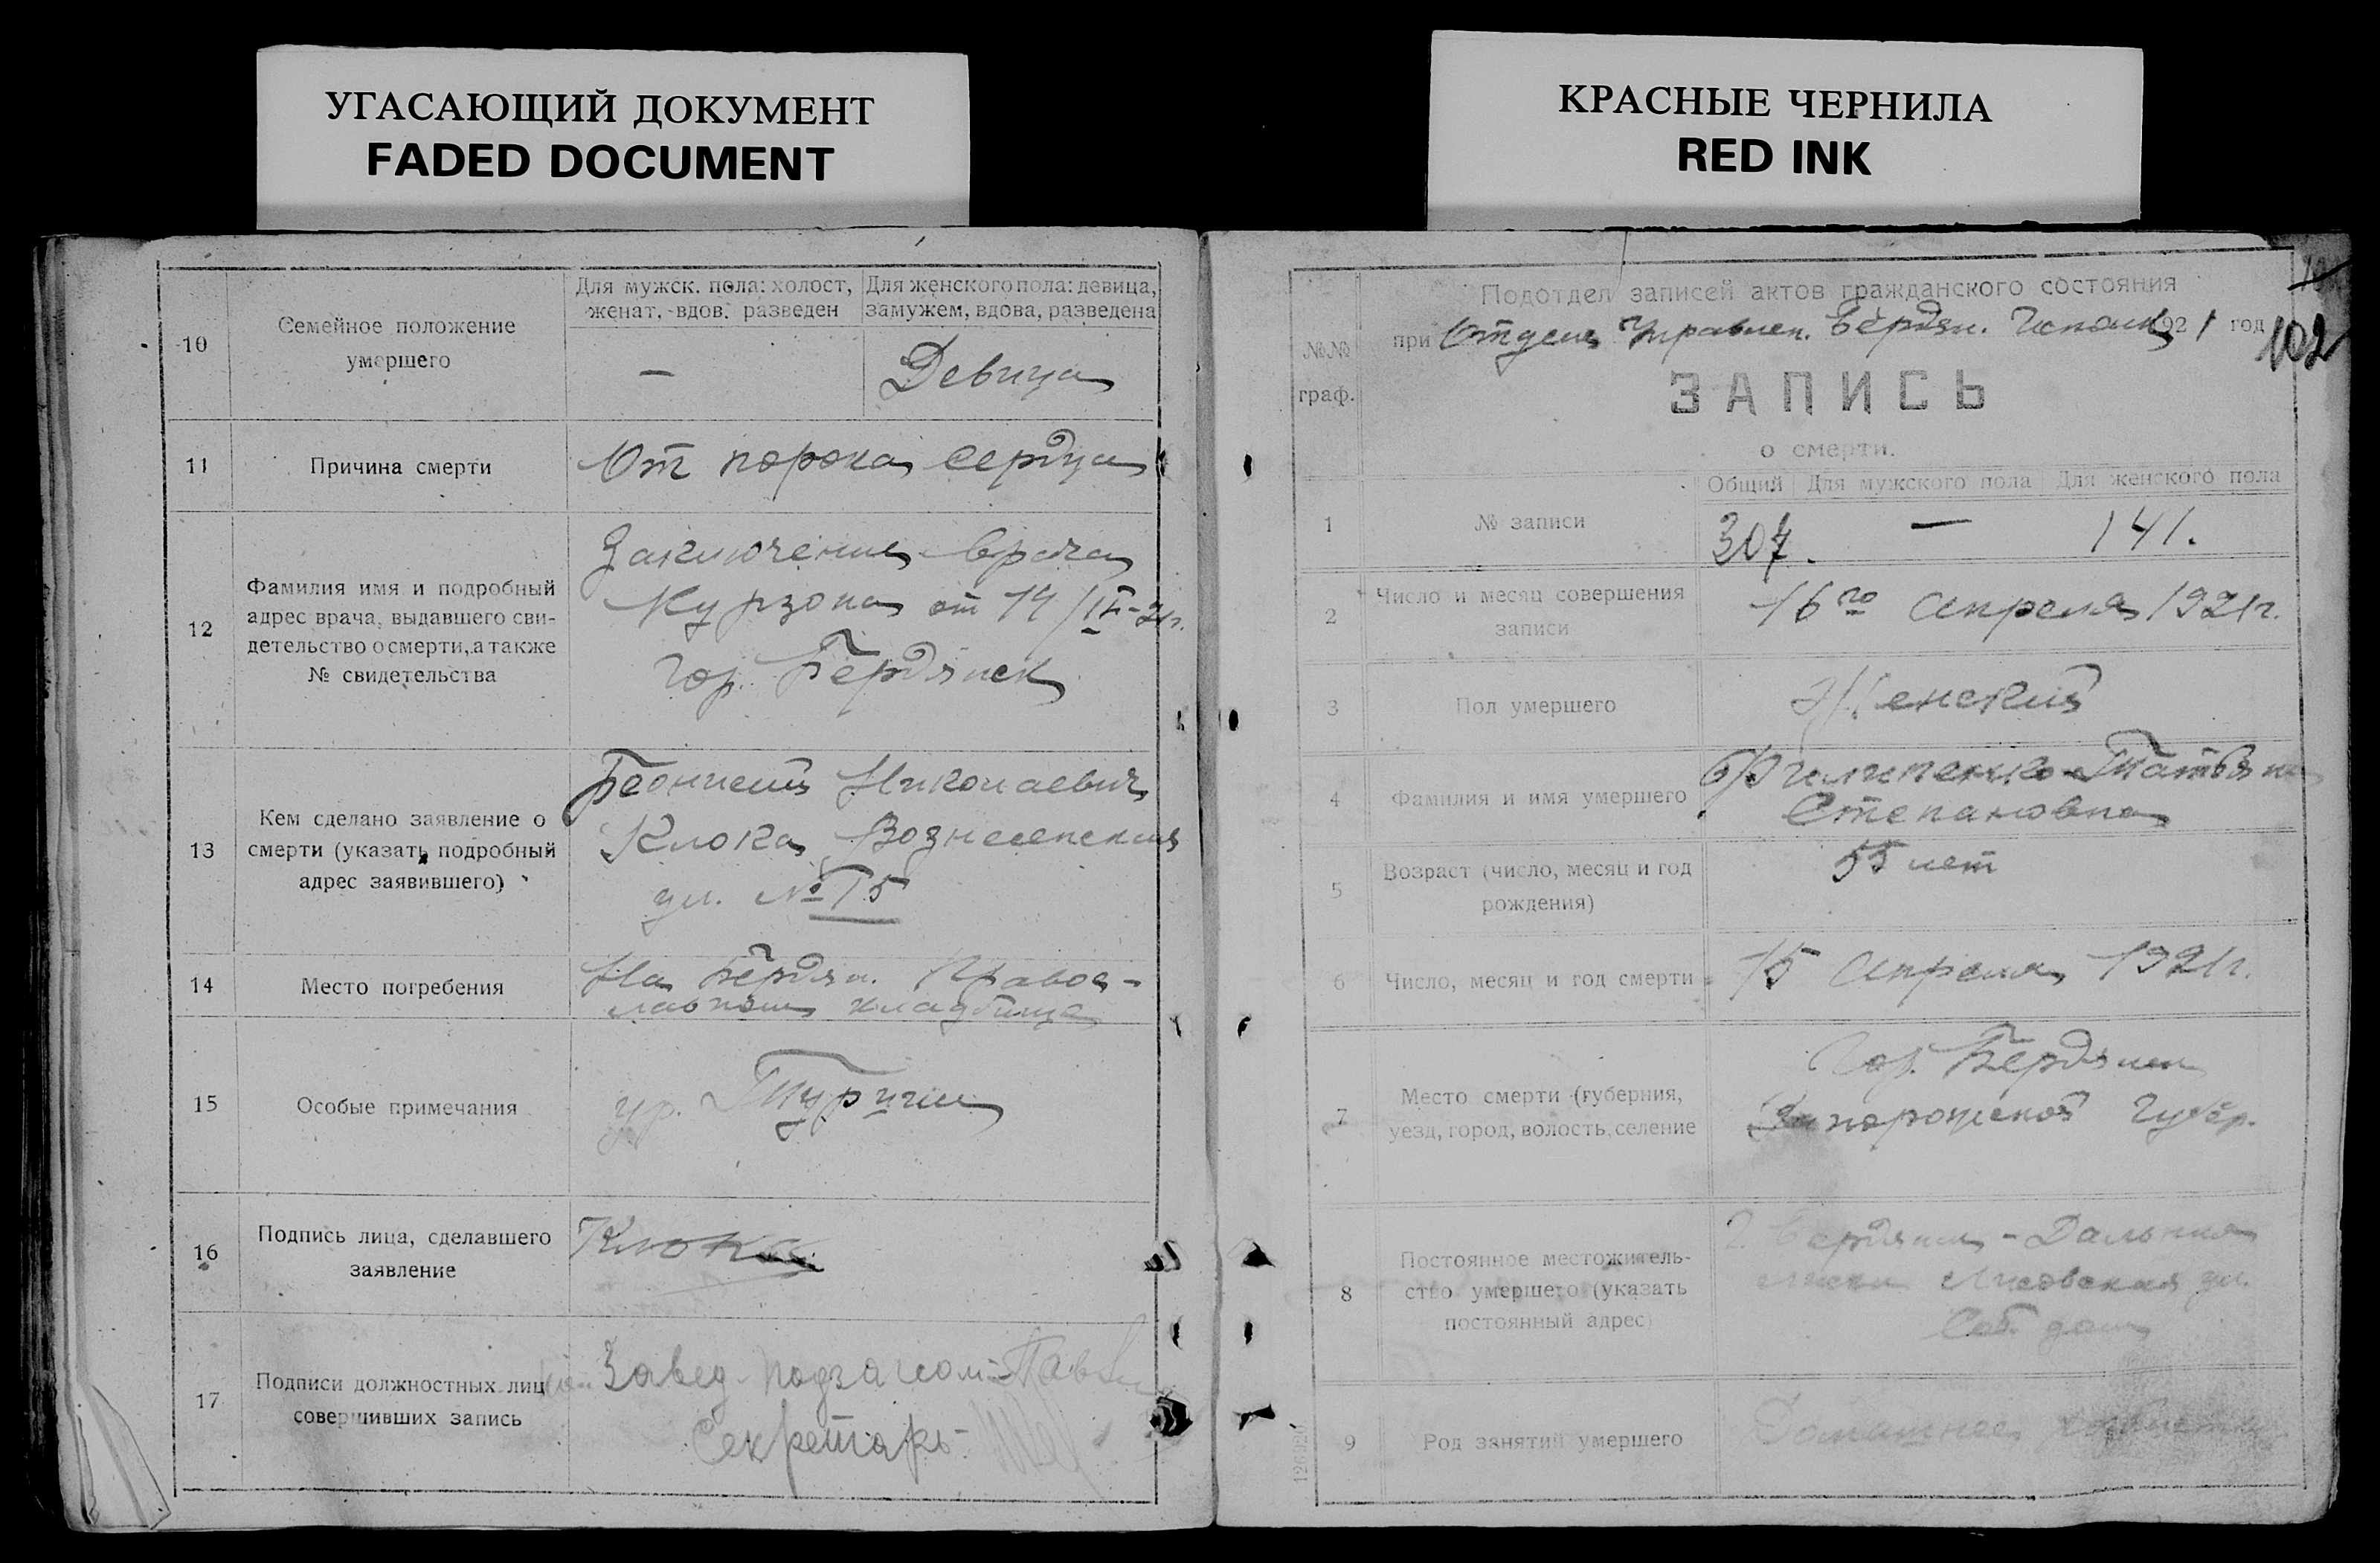 УГАСАЮЩИЙ ДОКУМЕНТ
FADED DOCUMENT
КРАСНЫЕ ЧЕРНИЛА
RED INK
10
Семейное положение
умершего
Для мужск. пола: холост,
женат, вдов. разведен
Для женского пола: девица,
замужем, вдова, разведена
—
Девица
11
Причина смерти
От порока сердца
12
Фамилия имя и подробный
адрес врача, выдавшего сви-
детельство о смерти, а также
№ свидетельства
Заключение врача
Курзона от 14/IV-21г.
Гор. Бердянск
13
Кем сделано заявление о
смерти (указать подробный
адрес заявившего)
Николаевич
Клока Вознесенская
ул. № 15
14
Место погребения
На Бердян. Правос-
лавном кладбище
15
Особые примечания
гр.
16
Подпись лица, сделавшего
заявление
Клока
17
Подписи должностных лиц
совершивших запись
Завед. подзагсом
Секретарь
Подотдел записей актов гражданского состояния
при Отделе Управлен. Бердян. Исполк 1921 год
102
№№
граф.
ЗАПИСЬ
о смерти.
Общий
Для мужского пола
Для женского пола
1
№ записи
307.
—
141.
2
Число и месяц совершения
записи
16го Апреля 1921г.
3
Пол умершего
Женский
4
Фамилия и имя умершего
Филипенко Татьяна
Степановна
5
Возраст (число, месяц и год
рождения)
55 лет
6
Число, месяц и год смерти
15 Апреля 1921г.
7
Место смерти (губерния,
уезд, город, волость, селение
Гор. Бердянск
Запорожской Губер.
8
Постоянное местожитель-
ство умершего (указать
постоянный адрес)
г. Бердянск - Дальния
Лиски Лисовская ул.
Соб. дом
9
Род занятий умершего
Домашнее хозяйство